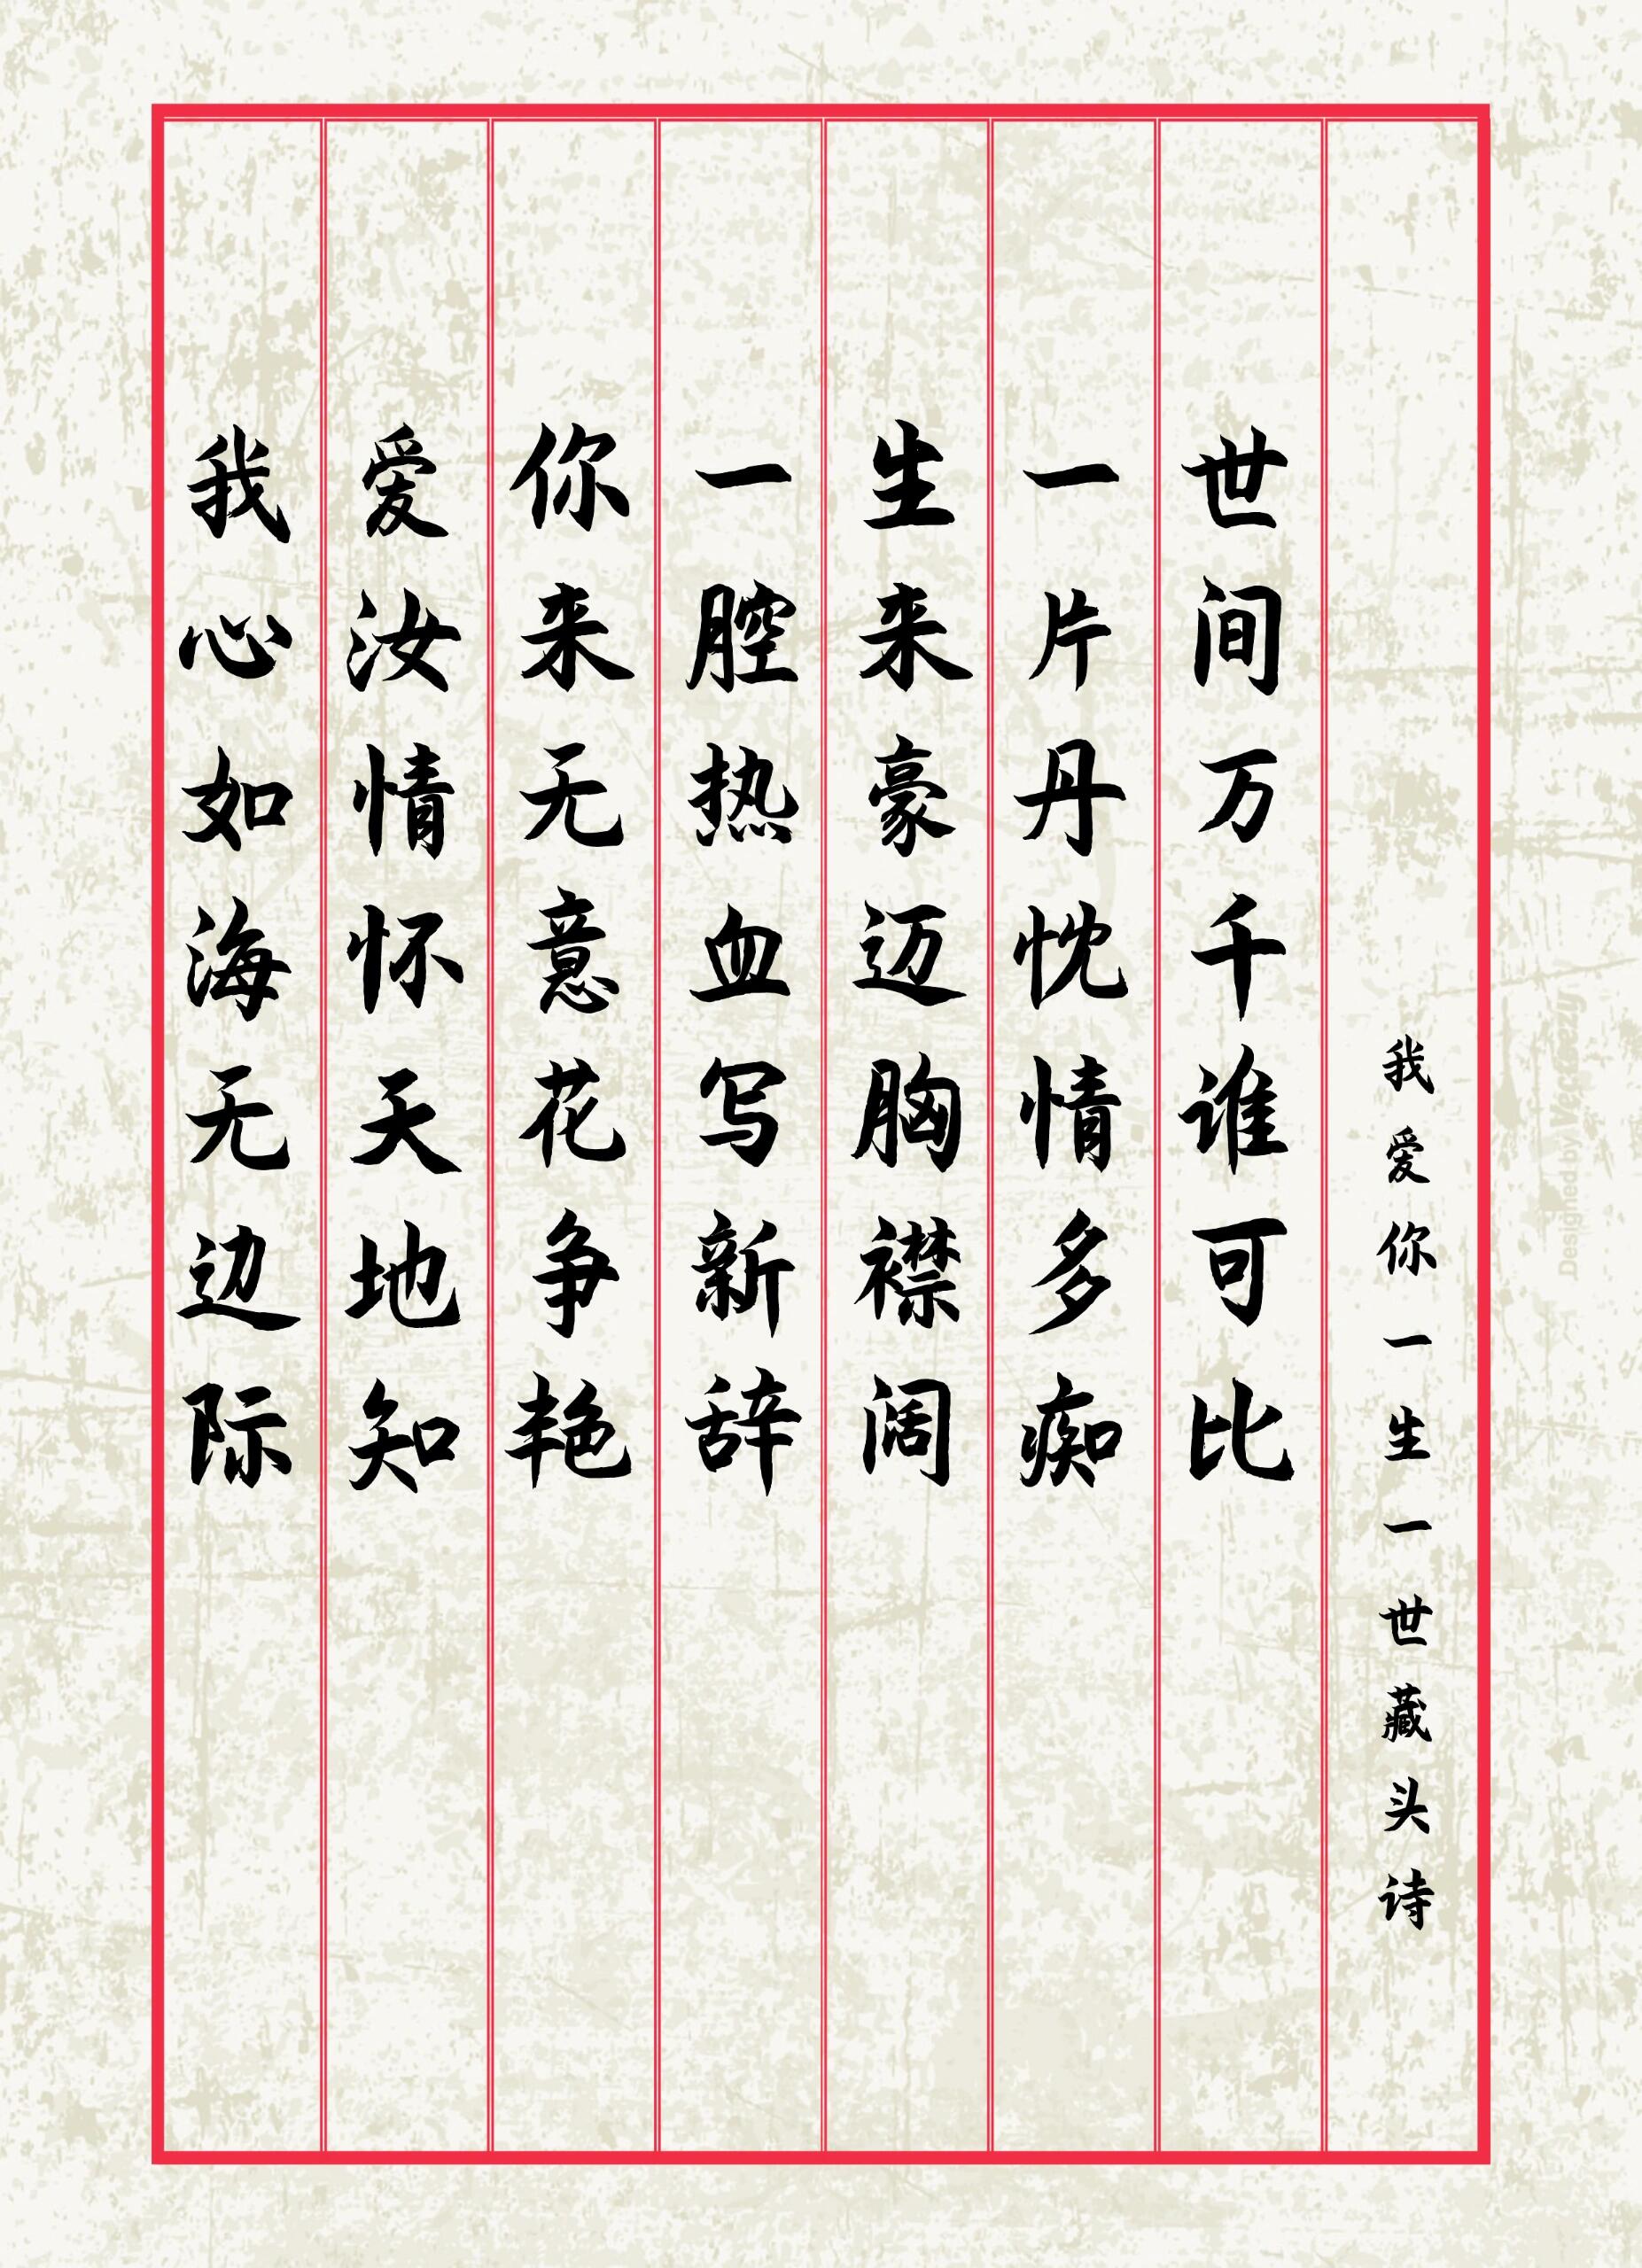 我心如海无边际
爱汝情怀天地知
你来无意花争艳
一腔热血写新辞
生来豪迈胸襟阔
一片丹忱情多痴
世间万千谁可比
我爱你一生一世藏头诗
Designed by Vecteezy